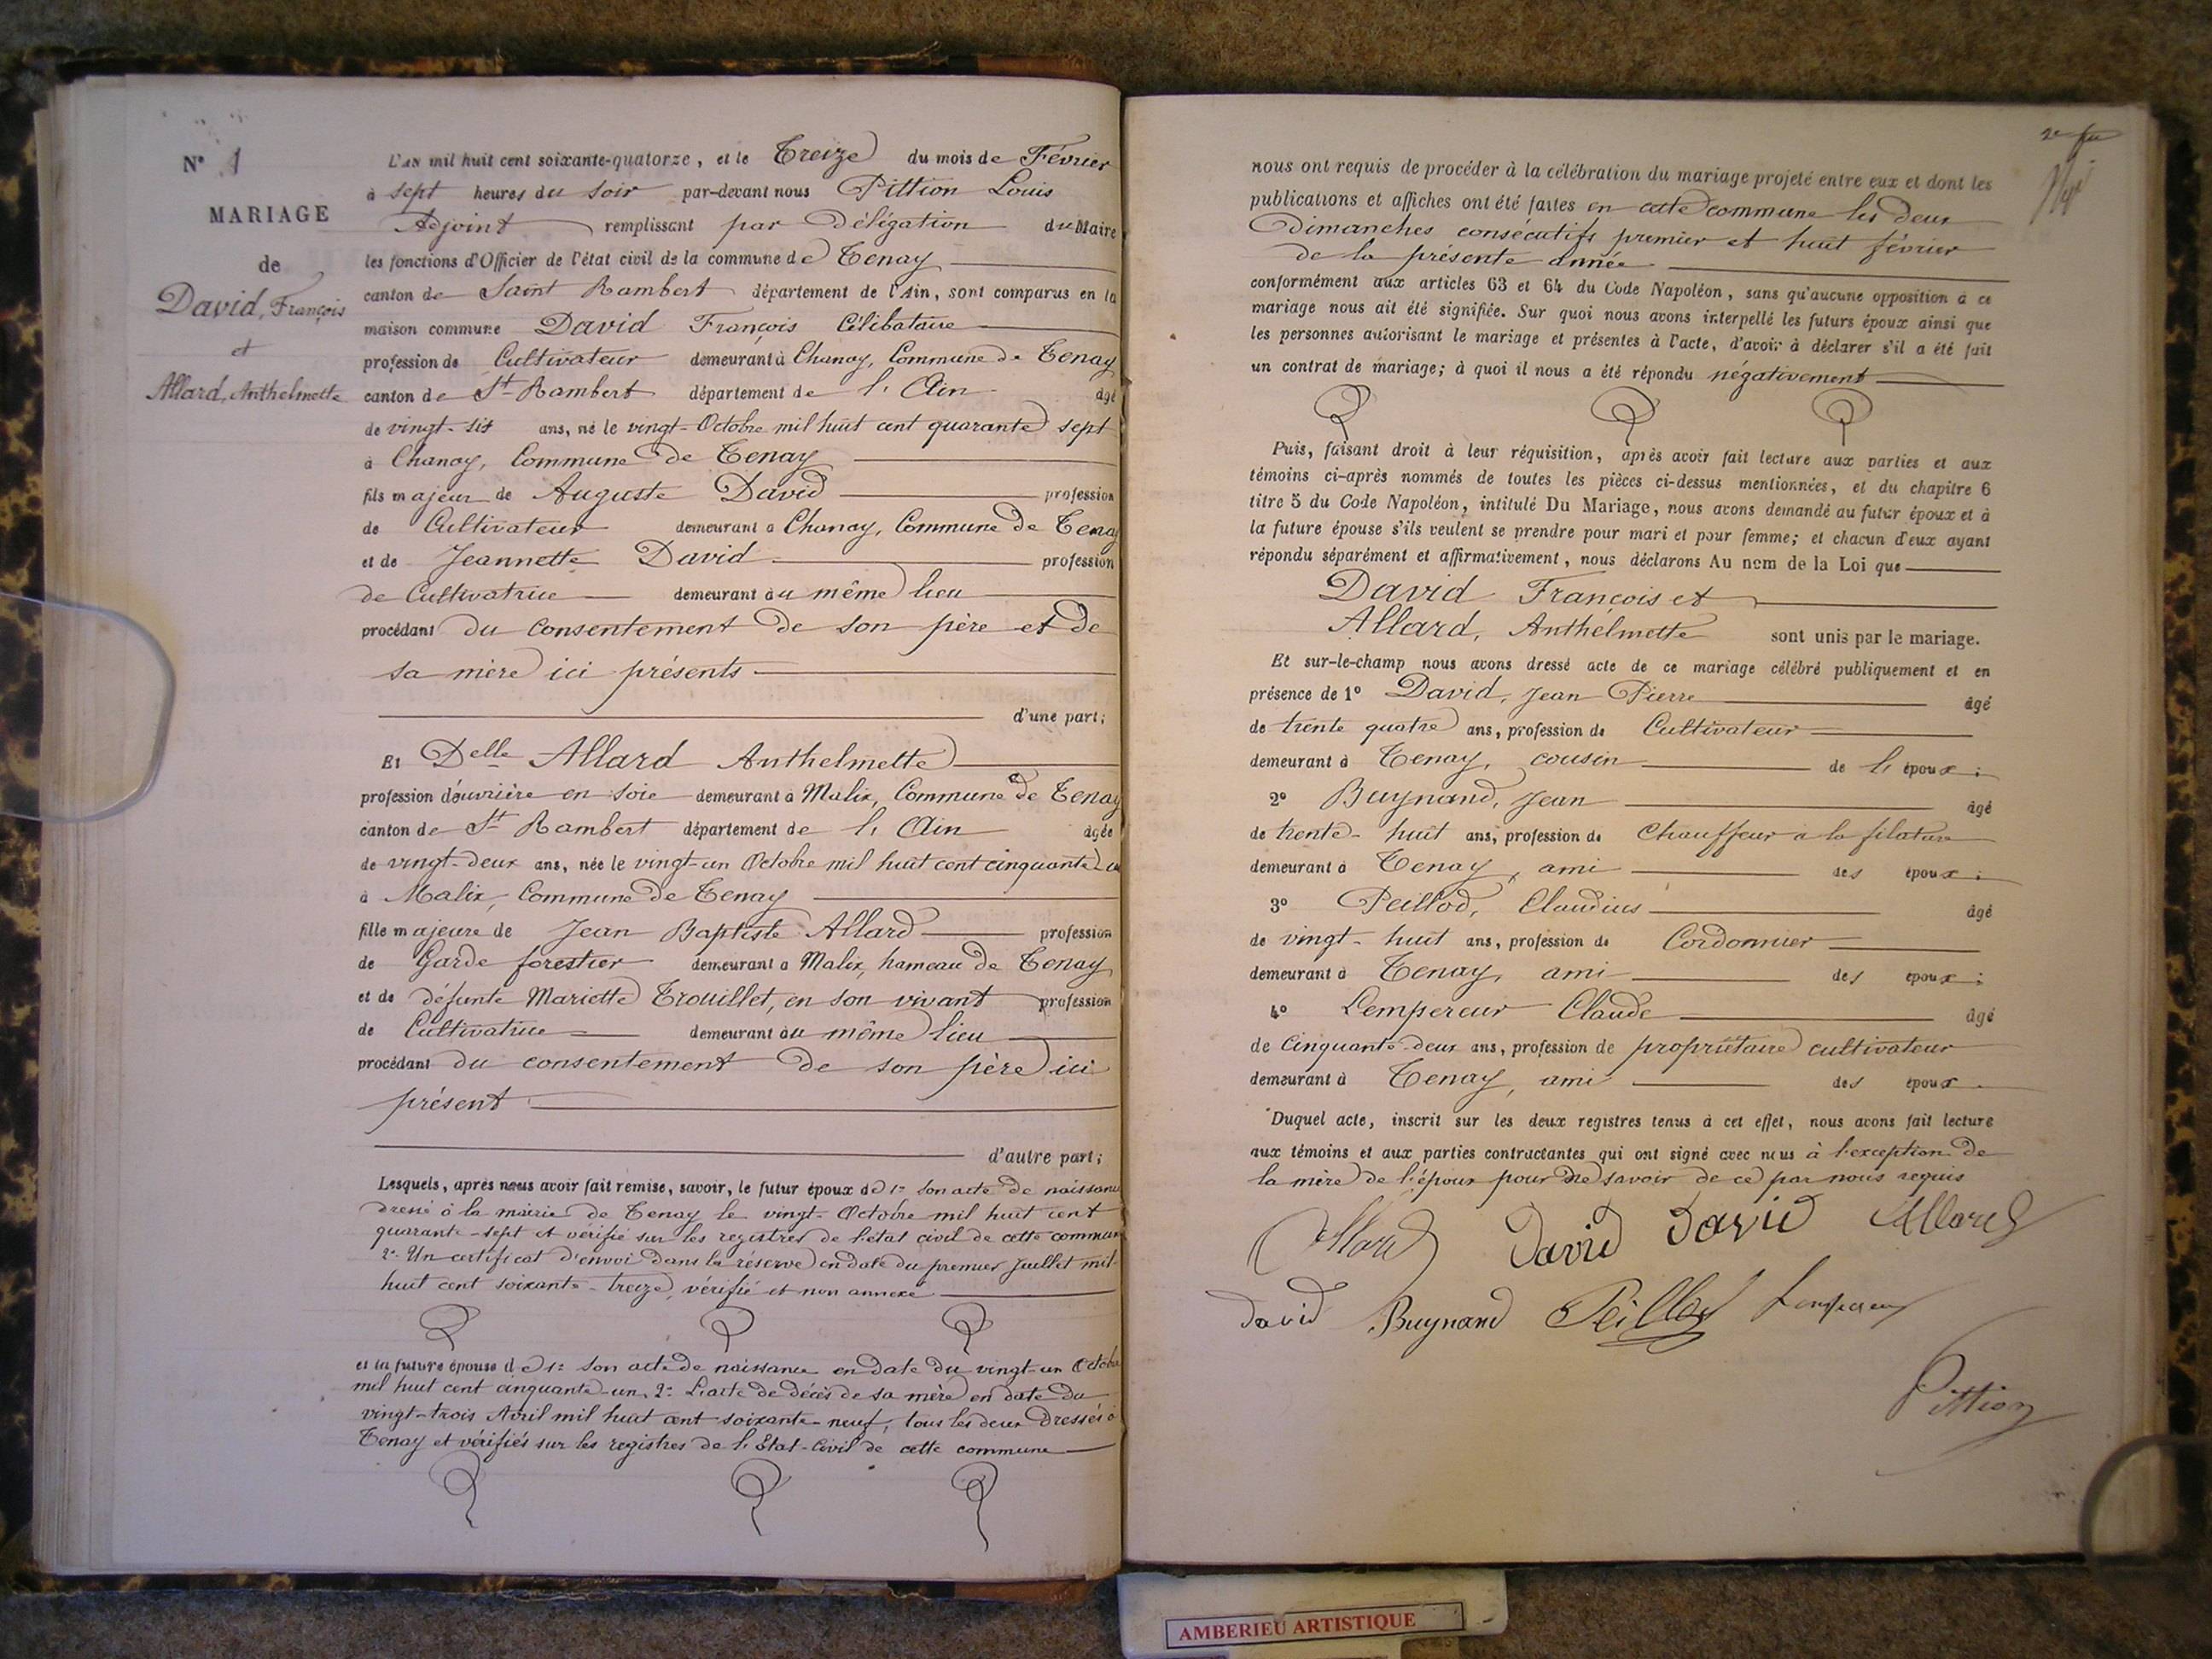 N° 1
MARIAGE
de
David, François
et
Allard, Anthelmette
L'AN mil huit cent soixante-quatorze, et le Treize du mois de Février
à sept heures du soir par-devant nous Pittion Louis
Adjoint remplissant par délégation du Maire
les fonctions d'Officier de l'état civil de la commune de Tenay
canton de Saint Rambert département de l'Ain, sont comparus en la
maison commune David François Célibataire
profession de Cultivateur demeurant à Chanay, Commune de Tenay
canton de St Rambert département de l'Ain âgé
de vingt-six ans, né le vingt-Octobre mil huit cent quarante sept
à Chanay, Commune de Tenay
fils majeur de Auguste David profession
de Cultivateur demeurant à Chanay, Commune de Tenay
et de Jeannette David profession
de Cultivatrice demeurant au même lieu
procédant du consentement de son père et de
sa mère ici présents
d'une part;
Et Delle Allard Anthelmette
profession d'ouvrière en soie demeurant à Malix, Commune de Tenay
canton de St Rambert département de l'Ain âgée
de vingt-deux ans, née le vingt-un Octobre mil huit cent cinquante-un
à Malix, Commune de Tenay
fille majeure de Jean Baptiste Allard profession
de Garde forestier demeurant à Malix, hameau de Tenay
et de défunte Mariette Trouillet, en son vivant profession
de Cultivatrice demeurant au même lieu
procédant du consentement de son père ici
présent
d'autre part;
Lesquels, après nous avoir fait remise, savoir, le futur époux de 1° son acte de naissance
dressé à la mairie de Tenay le vingt-Octobre mil huit cent
quarante-sept et vérifié sur les registres de l'état civil de cette commune
2° Un certificat d'envoi dans la réserve en date du premier Juillet mil
huit cent soixante-treize, vérifié et non annexé
et la future épouse de 1° son acte de naissance en date du vingt-un Octobre
mil huit cent cinquante-un, 2° L'acte de décès de sa mère en date du
vingt-trois Avril mil huit cent soixante-neuf, tous les deux dressés à
Tenay et vérifiés sur les registres de l'Etat-Civil de cette commune
2e
nous ont requis de procéder à la célébration du mariage projeté entre eux et dont les
publications et affiches ont été faites en cette commune les deux
Dimanches consécutifs premier et huit février
de la présente année
conformément aux articles 63 et 64 du Code Napoléon, sans qu'aucune opposition à ce
mariage nous ait été signifiée. Sur quoi nous avons interpellé les futurs époux ainsi que
les personnes autorisant le mariage et présentes à l'acte, d'avoir à déclarer s'il a été fait
un contrat de mariage; à quoi il nous a été répondu négativement
Puis, faisant droit à leur réquisition, après avoir fait lecture aux parties et aux
témoins ci-après nommés de toutes les pièces ci-dessus mentionnées, et du chapitre 6
titre 5 du Code Napoléon, intitulé Du Mariage, nous avons demandé au futur époux et à
la future épouse s'ils veulent se prendre pour mari et pour femme; et chacun d'eux ayant
répondu séparément et affirmativement, nous déclarons Au nom de la Loi que
David François et
Allard, Anthelmette sont unis par le mariage.
Et sur-le-champ nous avons dressé acte de ce mariage célébré publiquement et en
présence de 1° David, Jean Pierre âgé
de trente quatre ans, profession de Cultivateur
demeurant à Tenay, cousin de l'époux;
2° Buynand, Jean âgé
de trente-huit ans, profession de Chauffeur à la filature
demeurant à Tenay, ami des époux;
3° Peillod, Claudius âgé
de vingt-huit ans, profession de Cordonnier
demeurant à Tenay, ami des époux;
4° Lempereur Claude âgé
de Cinquante-deux ans, profession de propriétaire cultivateur
demeurant à Tenay, ami des époux.
Duquel acte, inscrit sur les deux registres tenus à cet effet, nous avons fait lecture
aux témoins et aux parties contractantes qui ont signé avec nous à l'exception de
la mère de l'époux pour ne savoir de ce par nous requis
Allard David David Allard
David Buynand Peillod Lempereur
Pittion
AMBERIEU ARTISTIQUE